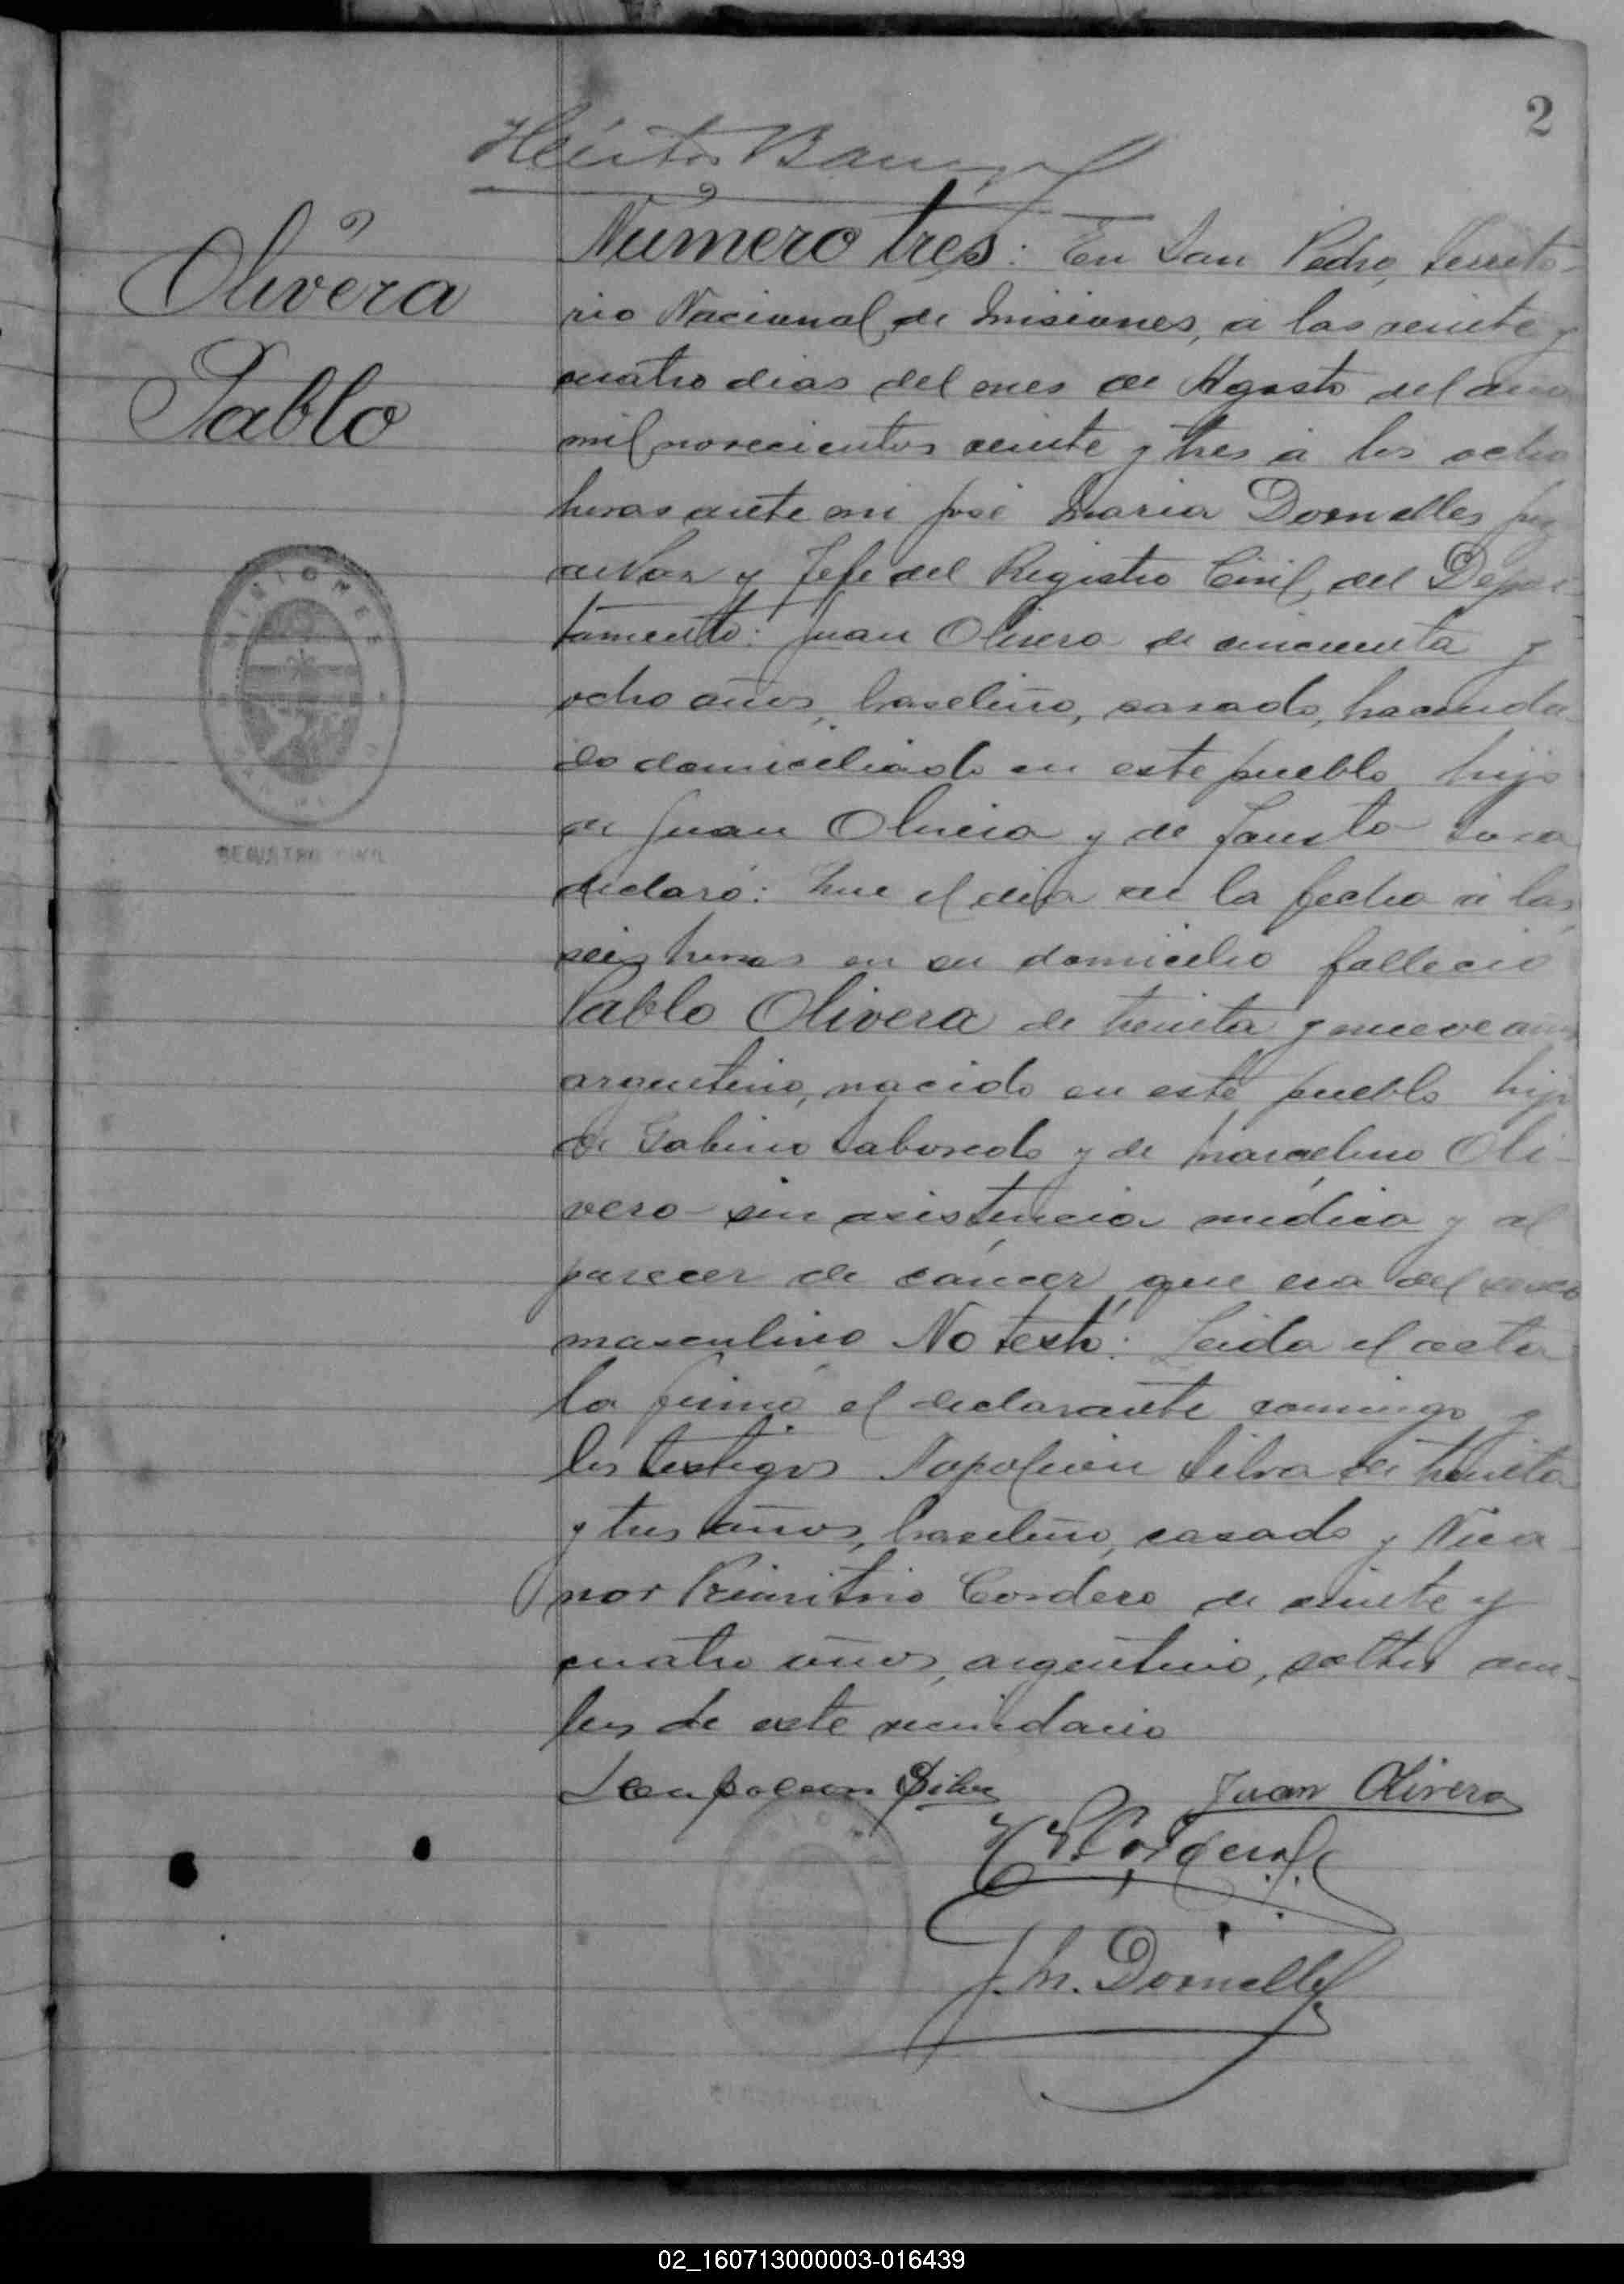 2
Olivera
Pablo
MISIONES
REGISTRO CIVIL
Número tres: En San Pedro, Territo-
rio Nacional de Misiones, á las veinte y
cuatro dias del mes de Agosto del año
mil novecientos veinte y tres á las ocho
horas ante mi José Maria Dornelles Juez
de Paz y Jefe del Registro Civil, del Depar-
tamento: Juan Olivera de cincuenta y
ocho años, brasileño, casado, hacenda-
do domiciliado en este pueblo hijo
de Juan Olivera y de Fausta
declaró: Que el dia de la fecha á las
seis horas en su domicilio falleció
Pablo Olivera de treinta y nueve años
argentino, nacido en este pueblo hijo
de Gabino Taboredo y de Marcelina Oli-
vera sin asistencia médica y al
parecer de cáncer, que era del sexo
masculino No testó: Leida el acta
la firmó el declarante conmigo y
los testigos Napoleon Silva de treinta
y tres años, brasileño, casado y Nica-
nor Cordero de veinte y
cuatro años, argentino, soltero am-
bos de este vecindario
Silva Juan Olivera
Cordero
J. M. Dornelles
02_160713000003-016439